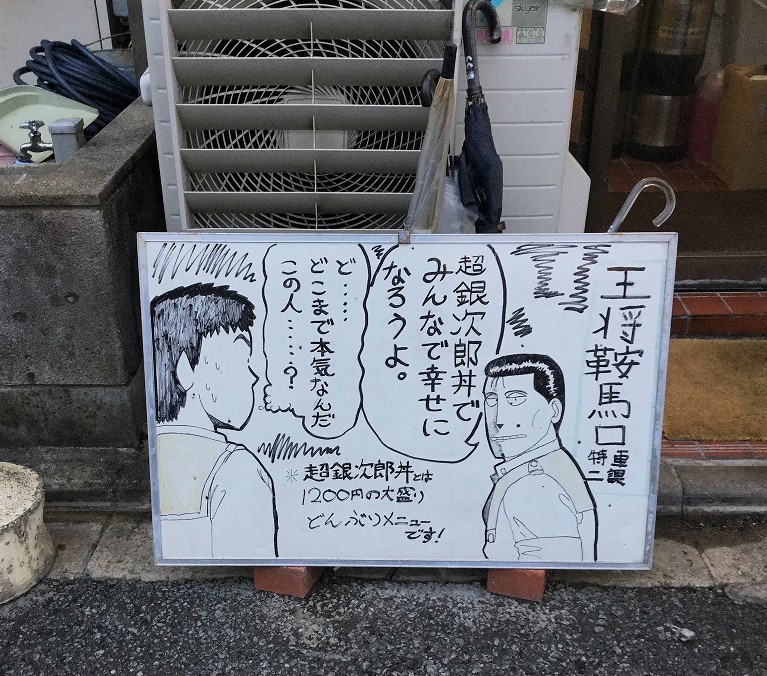 王将鞍馬口
特二
超銀次郎丼で
みんなで幸せに
なろうよ。
ど‥‥
どこまで本気なんだ
この人‥‥‥?
※超銀次郎丼とは
1200円の大盛り
どんぶりメニュー
です!
skyair